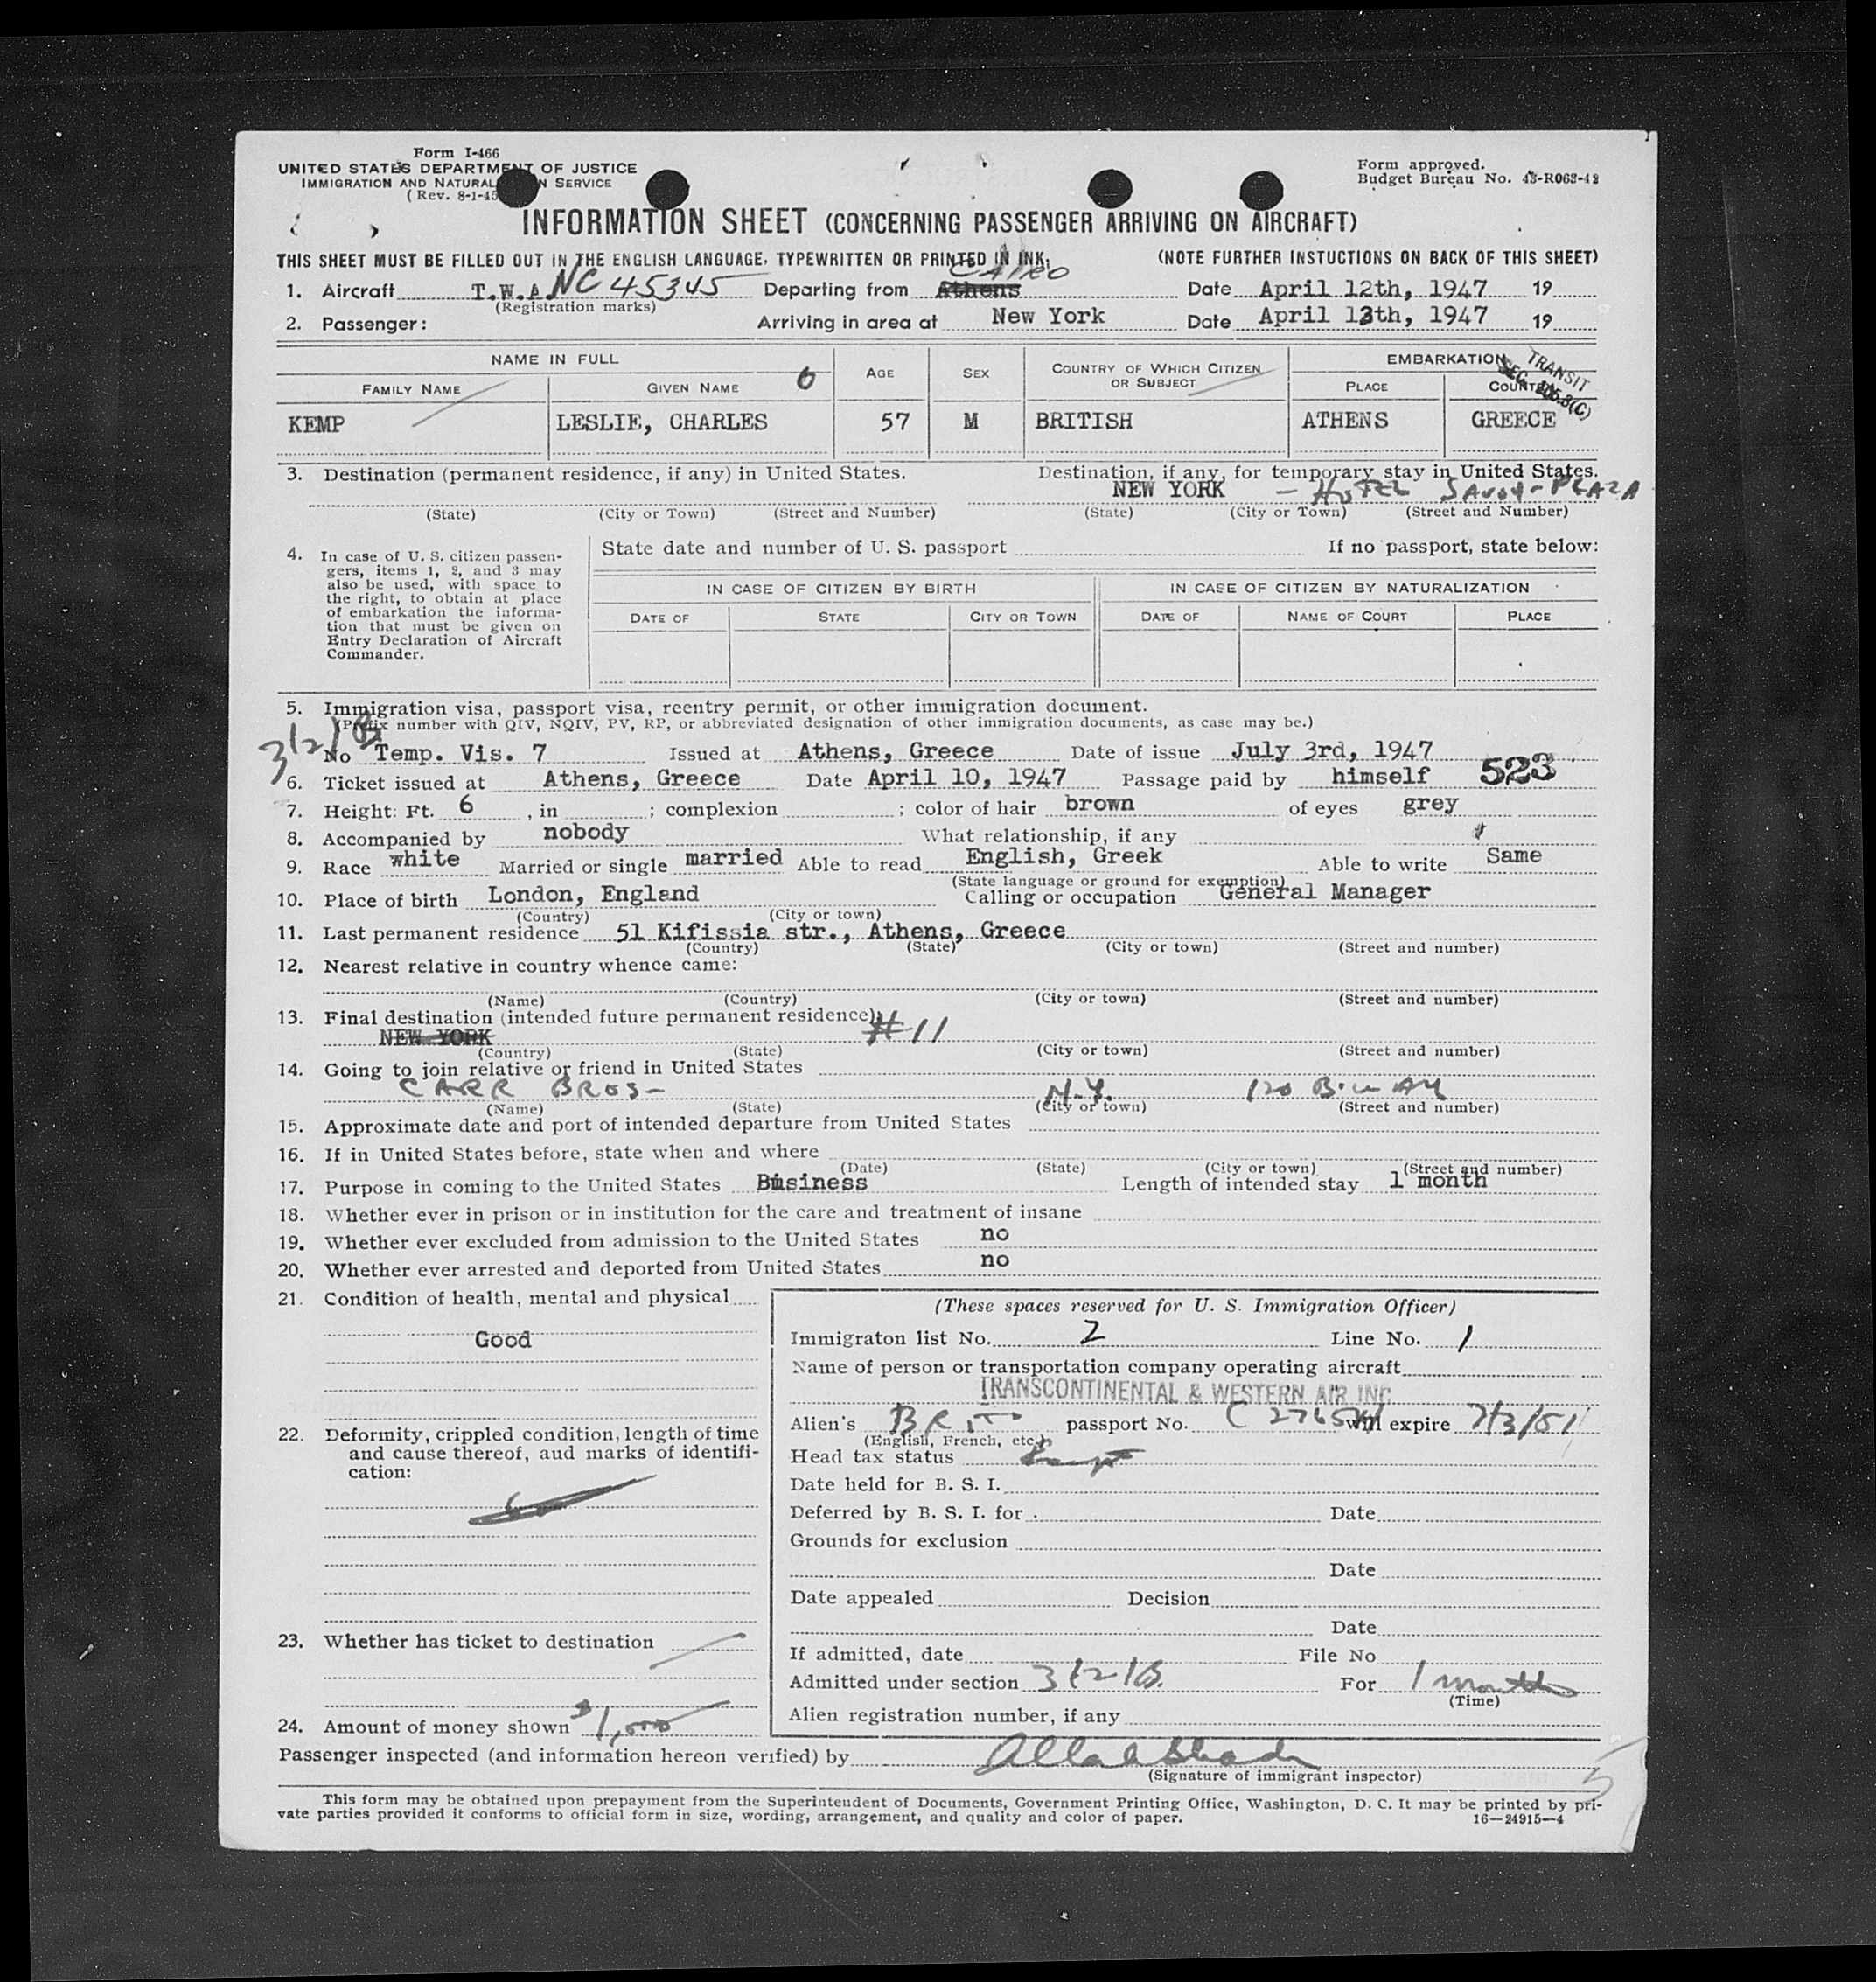 Form I-466
UNITED STATES DEPARTMENT OF JUSTICE
IMMIGRATION AND NATURAL N SERVICE
(Rev. 8-1-45
Form approved.
Budget Bureau No. 43-R063-42
INFORMATION SHEET (CONCERNING PASSENGER ARRIVING ON AIRCRAFT)
THIS SHEET MUST BE FILLED OUT IN THE ENGLISH LANGUAGE, TYPEWRITTEN OR PRINTED IN INK. (NOTE FURTHER INSTUCTIONS ON BACK OF THIS SHEET)
CAIRO
1. Aircraft T.W.A. NC 45345 Departing from Athens Date April 12th, 1947 19
(Registration marks)
2. Passenger: Arriving in area at New York Date April 13th, 1947 19
NAME IN FULL AGE SEX COUNTRY OF WHICH CITIZEN OR SUBJECT EMBARKATION
FAMILY NAME GIVEN NAME 6 PLACE COUNTRY
TRANSIT
SEC. 105.3(C)
KEMP LESLIE, CHARLES 57 M BRITISH ATHENS GREECE
3. Destination (permanent residence, if any) in United States. Destination, if any, for temporary stay in United States.
NEW YORK - HOTEL SAVOY-PLAZA
(State) (City or Town) (Street and Number) (State) (City or Town) (Street and Number)
4. In case of U. S. citizen passen-
gers, items 1, 2, and 3 may
also be used, with space to
the right, to obtain at place
of embarkation the informa-
tion that must be given on
Entry Declaration of Aircraft
Commander.
State date and number of U. S. passport If no passport, state below:
IN CASE OF CITIZEN BY BIRTH IN CASE OF CITIZEN BY NATURALIZATION
DATE OF STATE CITY OR TOWN DATE OF NAME OF COURT PLACE
5. Immigration visa, passport visa, reentry permit, or other immigration document.
(Prefix number with QIV, NQIV, PV, RP, or abbreviated designation of other immigration documents, as case may be.)
3/2/B
No Temp. Vis. 7 Issued at Athens, Greece Date of issue July 3rd, 1947
6. Ticket issued at Athens, Greece Date April 10, 1947 Passage paid by himself 523
7. Height: Ft. 6 , in ; complexion ; color of hair brown of eyes grey
8. Accompanied by nobody What relationship, if any
9. Race white Married or single married Able to read English, Greek Able to write Same
(State language or ground for exemption)
10. Place of birth London, England Calling or occupation General Manager
(Country) (City or town)
11. Last permanent residence 51 Kifissia str., Athens, Greece
(Country) (State) (City or town) (Street and number)
12. Nearest relative in country whence came:
(Name) (Country) (City or town) (Street and number)
13. Final destination (intended future permanent residence): #11
NEW YORK
(Country) (State) (City or town) (Street and number)
14. Going to join relative or friend in United States
CARR BROS- N.Y. 120 B.WAY
(Name) (State) (City or town) (Street and number)
15. Approximate date and port of intended departure from United States
16. If in United States before, state when and where
(Date) (State) (City or town) (Street and number)
17. Purpose in coming to the United States Business Length of intended stay 1 month
18. Whether ever in prison or in institution for the care and treatment of insane
19. Whether ever excluded from admission to the United States no
20. Whether ever arrested and deported from United States no
21. Condition of health, mental and physical
Good
22. Deformity, crippled condition, length of time
and cause thereof, aud marks of identifi-
cation:
23. Whether has ticket to destination
24. Amount of money shown $1,000
(These spaces reserved for U. S. Immigration Officer)
Immigraton list No. 2 Line No. 1
Name of person or transportation company operating aircraft
TRANSCONTINENTAL & WESTERN AIR INC
Alien's BRIT passport No. will expire 7/3/51
(English, French, etc.)
Head tax status Exempt
Date held for B. S. I.
Deferred by B. S. I. for Date
Grounds for exclusion
Date
Date appealed Decision
Date
If admitted, date File No
Admitted under section 3/2/B. For 1 month
(Time)
Alien registration number, if any
Passenger inspected (and information hereon verified) by
(Signature of immigrant inspector)
5
This form may be obtained upon prepayment from the Superintendent of Documents, Government Printing Office, Washington, D. C. It may be printed by pri-
vate parties provided it conforms to official form in size, wording, arrangement, and quality and color of paper. 16—24915—4